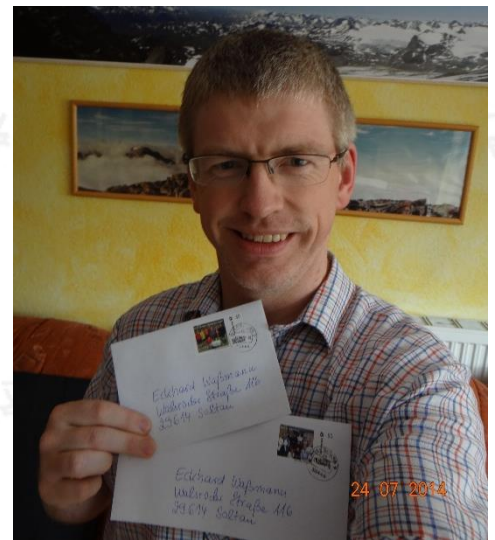 Eckhard Waßmann
Walsroder Straße 116
29614 Soltau
Eckhard Waßmann
Walsroder Straße 116
29614 Soltau
24 07 2014